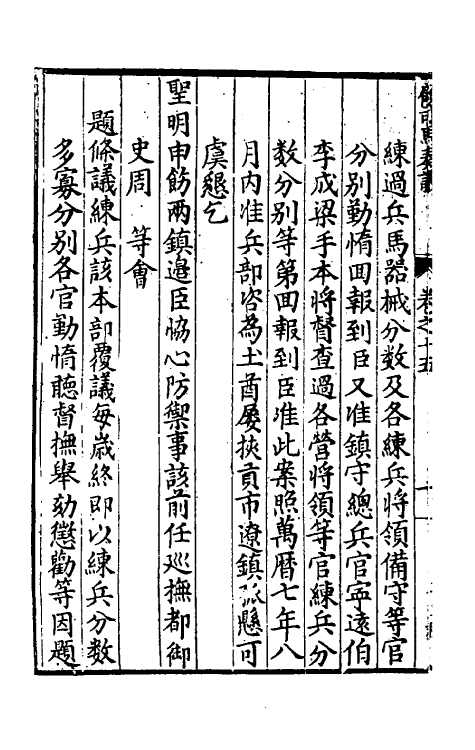 練過兵馬器械分數及各練兵將領備守等官
分別勤惰囬報到臣又准鎮守總兵官寜遠伯
李成梁手本將督查過各營將領等官練兵分
數分别等第囬報到臣准此案照萬曆七年八
月内准兵部咨為土酋屢挾貢市遼鎮孤懸可
虞懇乞
聖明申飭兩鎮邉臣恊心防禦事該前任廵撫都御
史周 等會
題條議練兵該本部覆議每歳終即以練兵分數
多寡分别各官勤惰聽督撫舉劾懲勸等因題
卷之十五